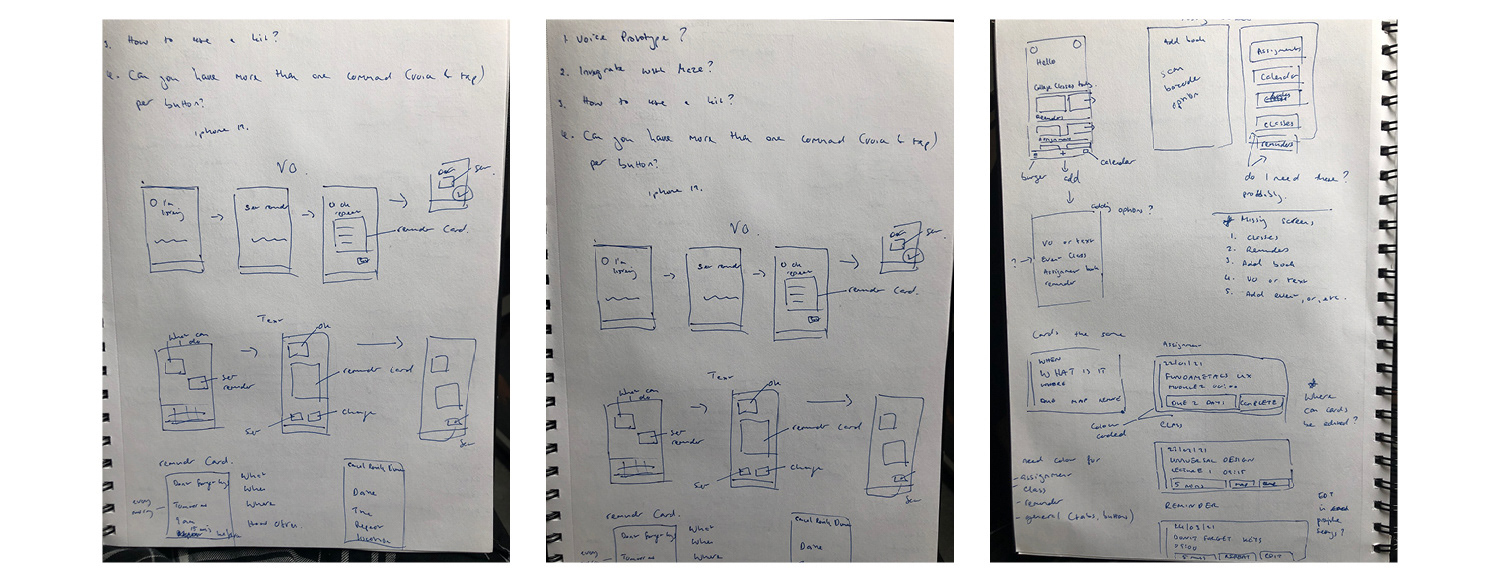 3. How to use a kit?
4. Can you have more than one command (voice & tap)
per button?
iphone 12.
VO.
I'm
listening
Set reminder
Ok
repeat
reminder Card.
Text
What can
I do
Set
reminder
OK
reminder card
change
Set
reminder Card.
Don't forget keys
Tomorrow
9 am
What
When
Where
How often
Date
Time
Repeat
location
1. Voice Prototype?
2. Integrate with Maze?
3. How to use a kit?
4. Can you have more than one command (voice & tap)
per button?
iphone 12.
VO.
I'm
listening
Set reminder
Ok
repeat
reminder Card.
Text
What can
I do
Set
reminder
OK
reminder card
change
Set
reminder Card.
Don't forget keys
Tomorrow
What
When
Where
Date
Hello
College Classes today
Reminders
Assignments
burger
add
calendar
Add book
scan
barcode
option
Assignments
Calendar
classes
reminders
do I need these?
probably.
adding options?
VO or text
Event Class
Assignment book
reminder
?
Missing screens
1. Classes
2. Reminders
3. Add book
4. VO or text
5. Add event, or, etc.
Cards the same
WHEN
WHAT IS IT
WHERE
DUE MAP
Assignment
22/01/21
FUNDAMETALS UX
MODULE 2 00:00
DUE 2 DAYS COMPLETE
Colour
coded
CLASS
Where
can cards
be edited?
UNIVERSAL DESIGN
LECTURE 1 09:15
5 mins MAP
need colour for
- assignment
- class
- reminder
- general (tabs, buttons)
REMINDER
DON'T FORGET KEYS
05:00
5 mins REPEAT EDIT